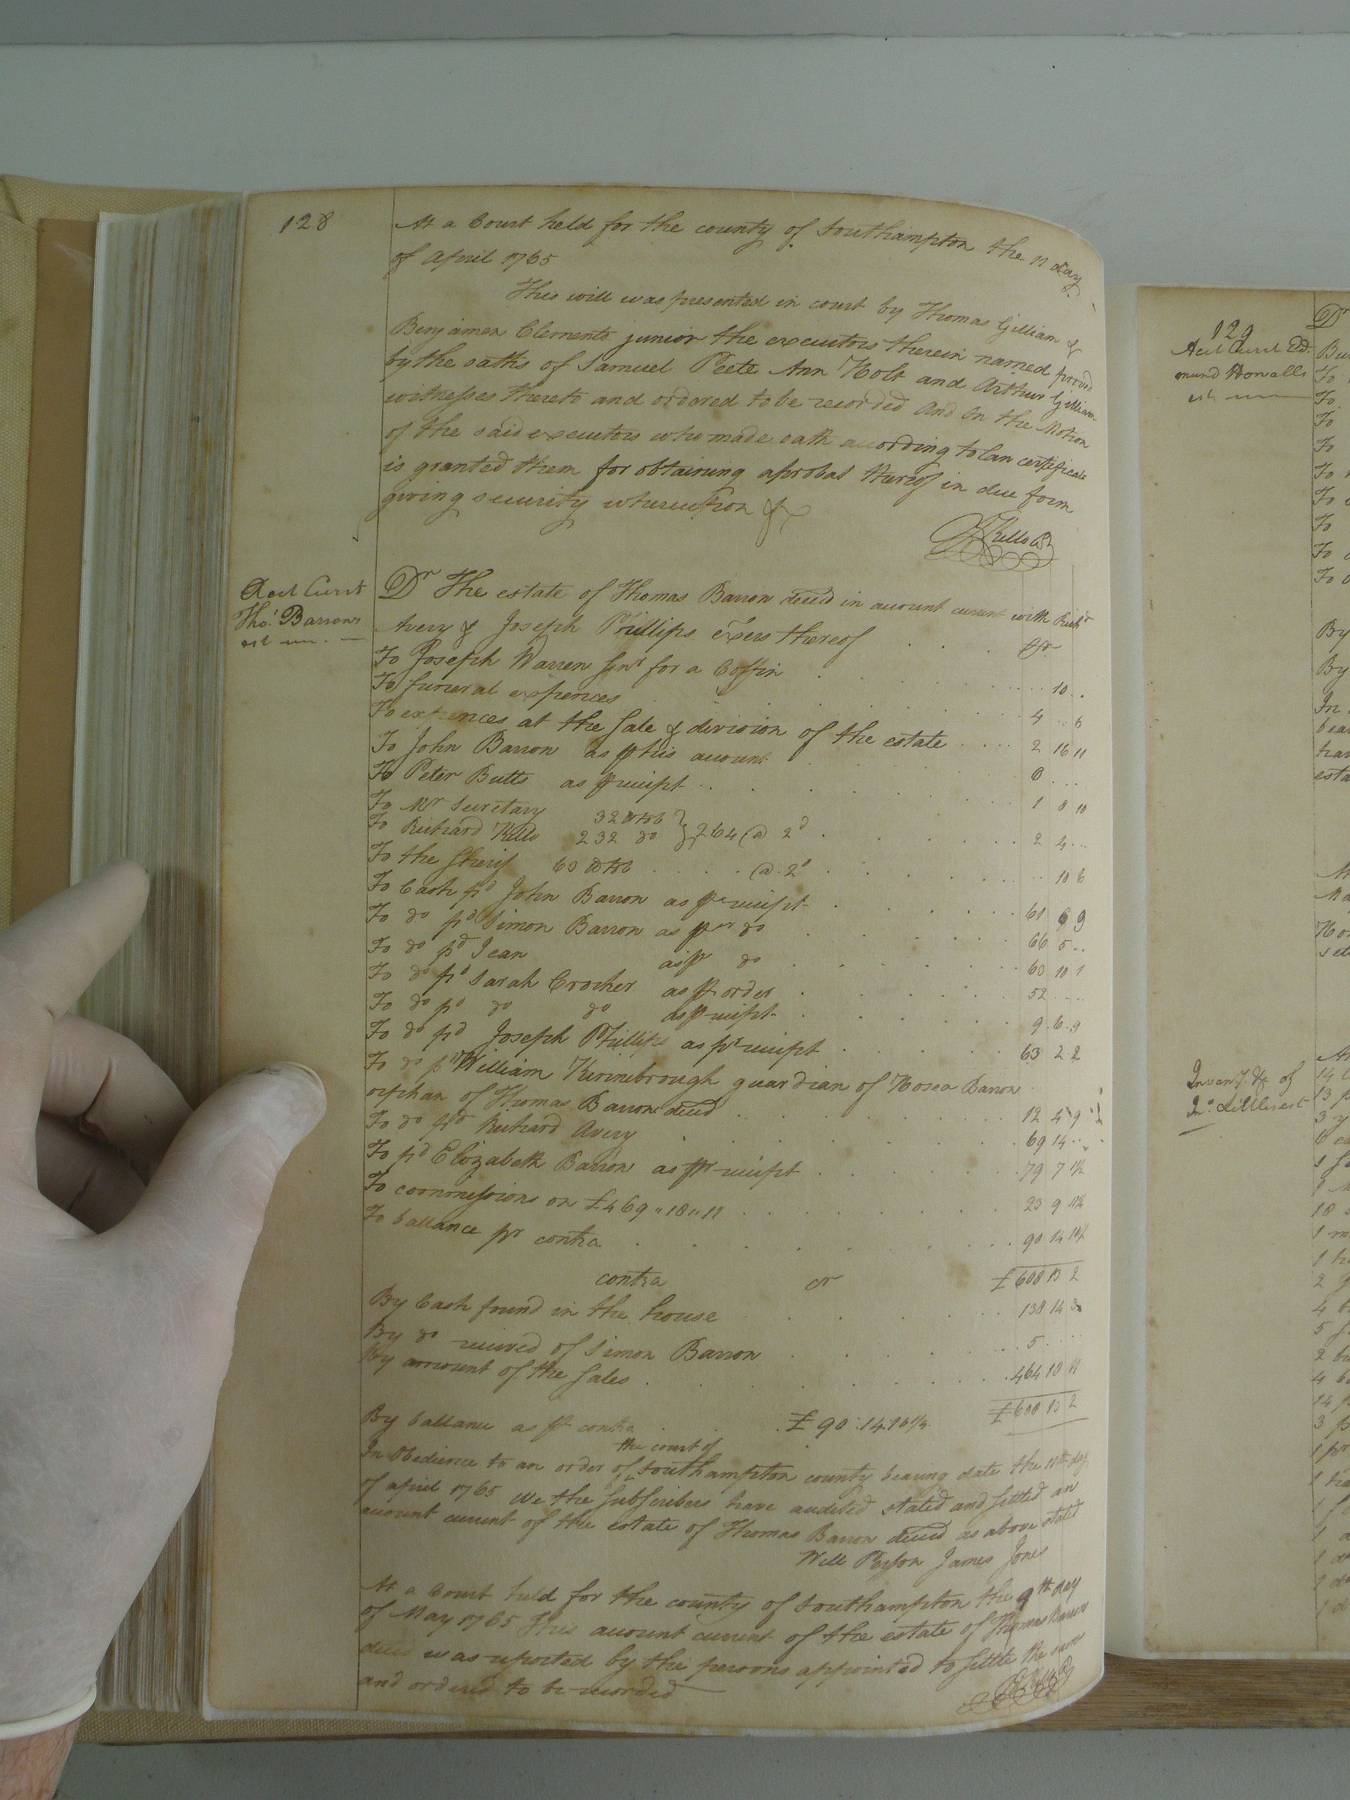 128
At a Court held for the county of Southampton the 11 day
of April 1765
This will was presented in court by Thomas Gilliam &
Benjamen Clements junior the executors therein named proved
by the oaths of Samuel Peete Ann Holt and Arthur Gilliam
witnesses thereto and ordered to be recorded And On the Motion
of the said executors who made oath according to law certificate
is granted them for obtaining a probat thereof in due form
giving security whereupon &c
R Kello Cl
Acct Currt
Tho.s Barrons
est
Dr The estate of Thomas Barron decd in account current with Richd
Avery & Joseph Phillips exers thereof
To Joseph Warren Senr for a Coffin 10
To funeral expences 4 6
To expences at the Sale & division of the estate 2 16 11
To John Barron as pr his account 8
To Peter Butts as pr receipt 1 8 10
To Mr Secretary 32 wtob
To Richard Kello 232 do } 264 @ 2d 2 4
To the Sherif 63 wtob @ 2d 10 6
To Cash pd John Barron as pr receipt 9
To do pd Simon Barron as pr do 66 5
To do pd Jean as pr do 60 10 1
To do pd Sarah Crocker as pr order 52
To do pd do do as pr receipt 9 6 9
To do pd Joseph Phillips as pr receipt 63 2 2
To do pd William Kinnebrough guardian of Hosea Barron
orphan of Thomas Barron decd 12 4 9
To do pd Richard Avery 69 14
To pd Elizabeth Barron as pr receipt 79 7 1½
To commissions on £469 " 18 " 11 23 9 11¼
To ballance pr contra 90 14 10¼
£608 13 2
contra cr
By Cash found in the house 138 14 3
By do received of Simon Barron 5
By amount of the Sales 464 18 11
£608 13 2
By ballance as pr contra £90:14:10¼
In Obedience to an order of the court of Southampton county bearing date the 11th day
of april 1765 We the Subscribers have audited stated and settled an
account current of the estate of Thomas Barron decd as above stated
Will Person James Jones
At a Court held for the county of Southampton the 9th day
of May 1765 This account current of the estate of Thomas Barron
decd was reported by the persons appointed to settle the same
and ordered to be recorded
129
Acct Currt Ed
mund Howells
est
Dr
Inventy. &c of